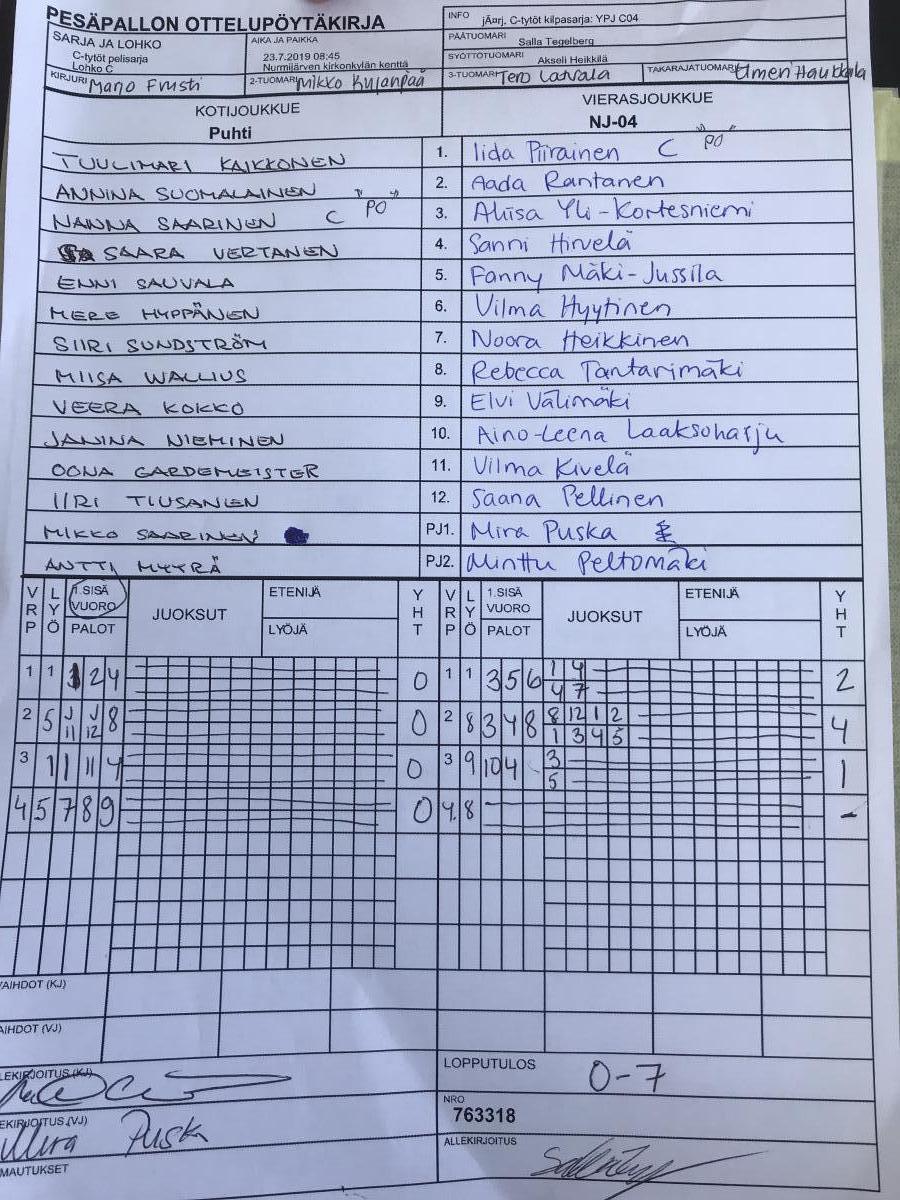 PESÄPALLON OTTELUPÖYTÄKIRJA
INFO jÄorj. C-tytöt kilpasarja: YPJ C04
SARJA JA LOHKO
C-tytöt pelisarja
Lohko C
AIKA JA PAIKKA
23.7.2019 08:45
Nurmijärven kirkonkylän kenttä
PÄÄTUOMARI Salla Tegelberg
SYÖTTÖTUOMARI Akseli Heikkilä
KIRJURI
2-TUOMARI Mikko Kujanpää
3-TUOMARI Tero Latvala
TAKARAJATUOMARI
KOTIJOUKKUE
Puhti
VIERASJOUKKUE
NJ-04
TUULIMARI KAIKKONEN 1. Iida Piirainen C "PO"
ANNINA SUOMALAINEN 2. Aada Rantanen
NANNA SAARINEN C "PO" 3. Aliisa Yli-Kortesniemi
SAARA VERTANEN 4. Sanni Hirvelä
ENNI SAUVALA 5. Fanny Mäki-Jussila
MERE HYPPÄNEN 6. Vilma Hyytinen
SIIRI SUNDSTRÖM 7. Noora Heikkinen
MIISA WALLIUS 8. Rebecca Tantarimäki
VEERA KOKKO 9. Elvi Välimäki
JANINA NIEMINEN 10. Aino-Leena Laaksoharju
OONA GARDEMEISTER 11. Vilma Kivelä
IIRI TIUSANEN 12. Saana Pellinen
MIKKO SAARINEN PJ1. Mira Puska
ANTTI MYYRÄ PJ2. Minttu Peltomäki
VRP LYÖ 1.SISÄ VUORO PALOT JUOKSUT ETENIJÄ LYÖJÄ YHT VRP LYÖ 1.SISÄ VUORO PALOT JUOKSUT ETENIJÄ LYÖJÄ YHT
1 1 2 4 0 1 1 3 5 6 1 4 2
4 7
2 5 J J 8 0 2 8 3 4 8 8 12 1 2 4
11 12 1 3 4 5
3 1 1 11 4 0 3 9 10 4 - 3 1
5
4 5 7 8 9 0 4. 8 -
VAIHDOT (KJ)
VAIHDOT (VJ)
ALLEKIRJOITUS (KJ)
LOPPUTULOS 0-7
ALLEKIRJOITUS (VJ) Mira Puska
NRO
763318
HUOMAUTUKSET
ALLEKIRJOITUS